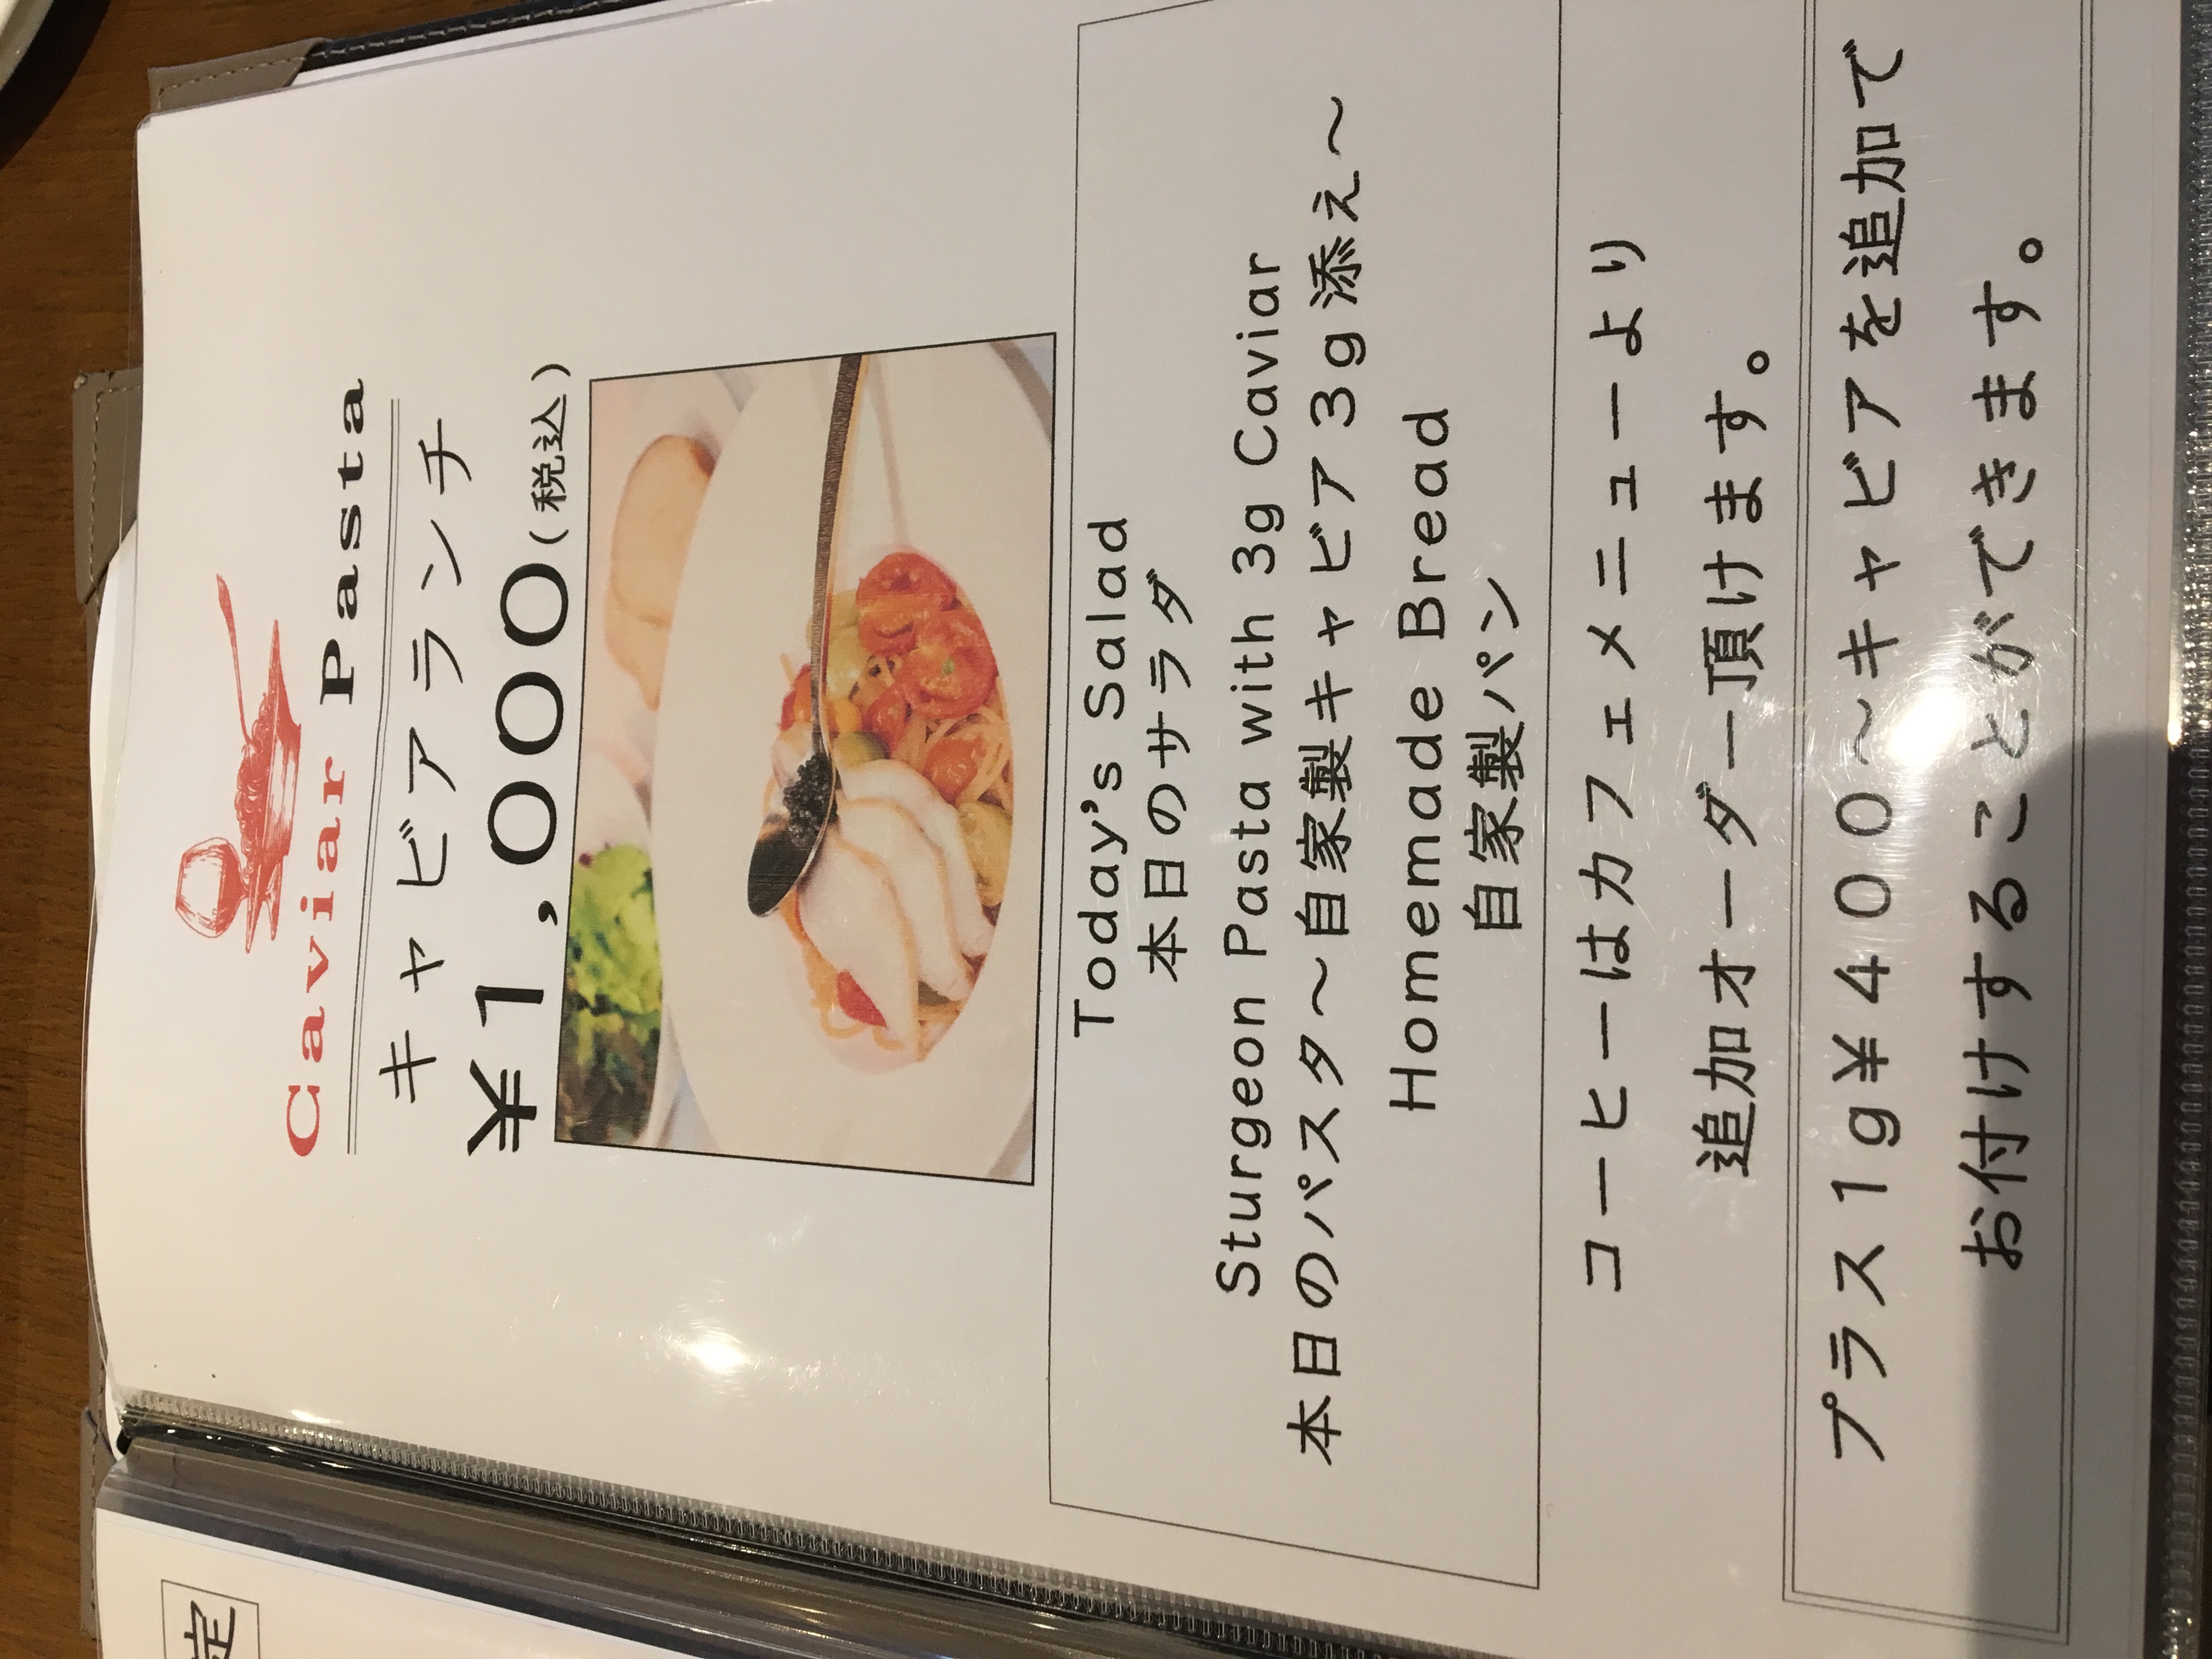 Caviar Pasta
キャビアランチ
¥1,000(税込)
Today's Salad
本日のサラダ
Sturgeon Pasta with 3g Caviar
本日のパスタ～自家製キャビア3g添え～
Homemade Bread
自家製パン
コーヒーはカフェメニューより
追加オーダー頂けます。
プラス1g¥400～キャビアを追加で
お付けすることができます。
定